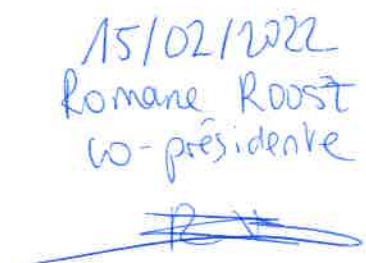 15/02/2022
Romane Roost
co-présidente